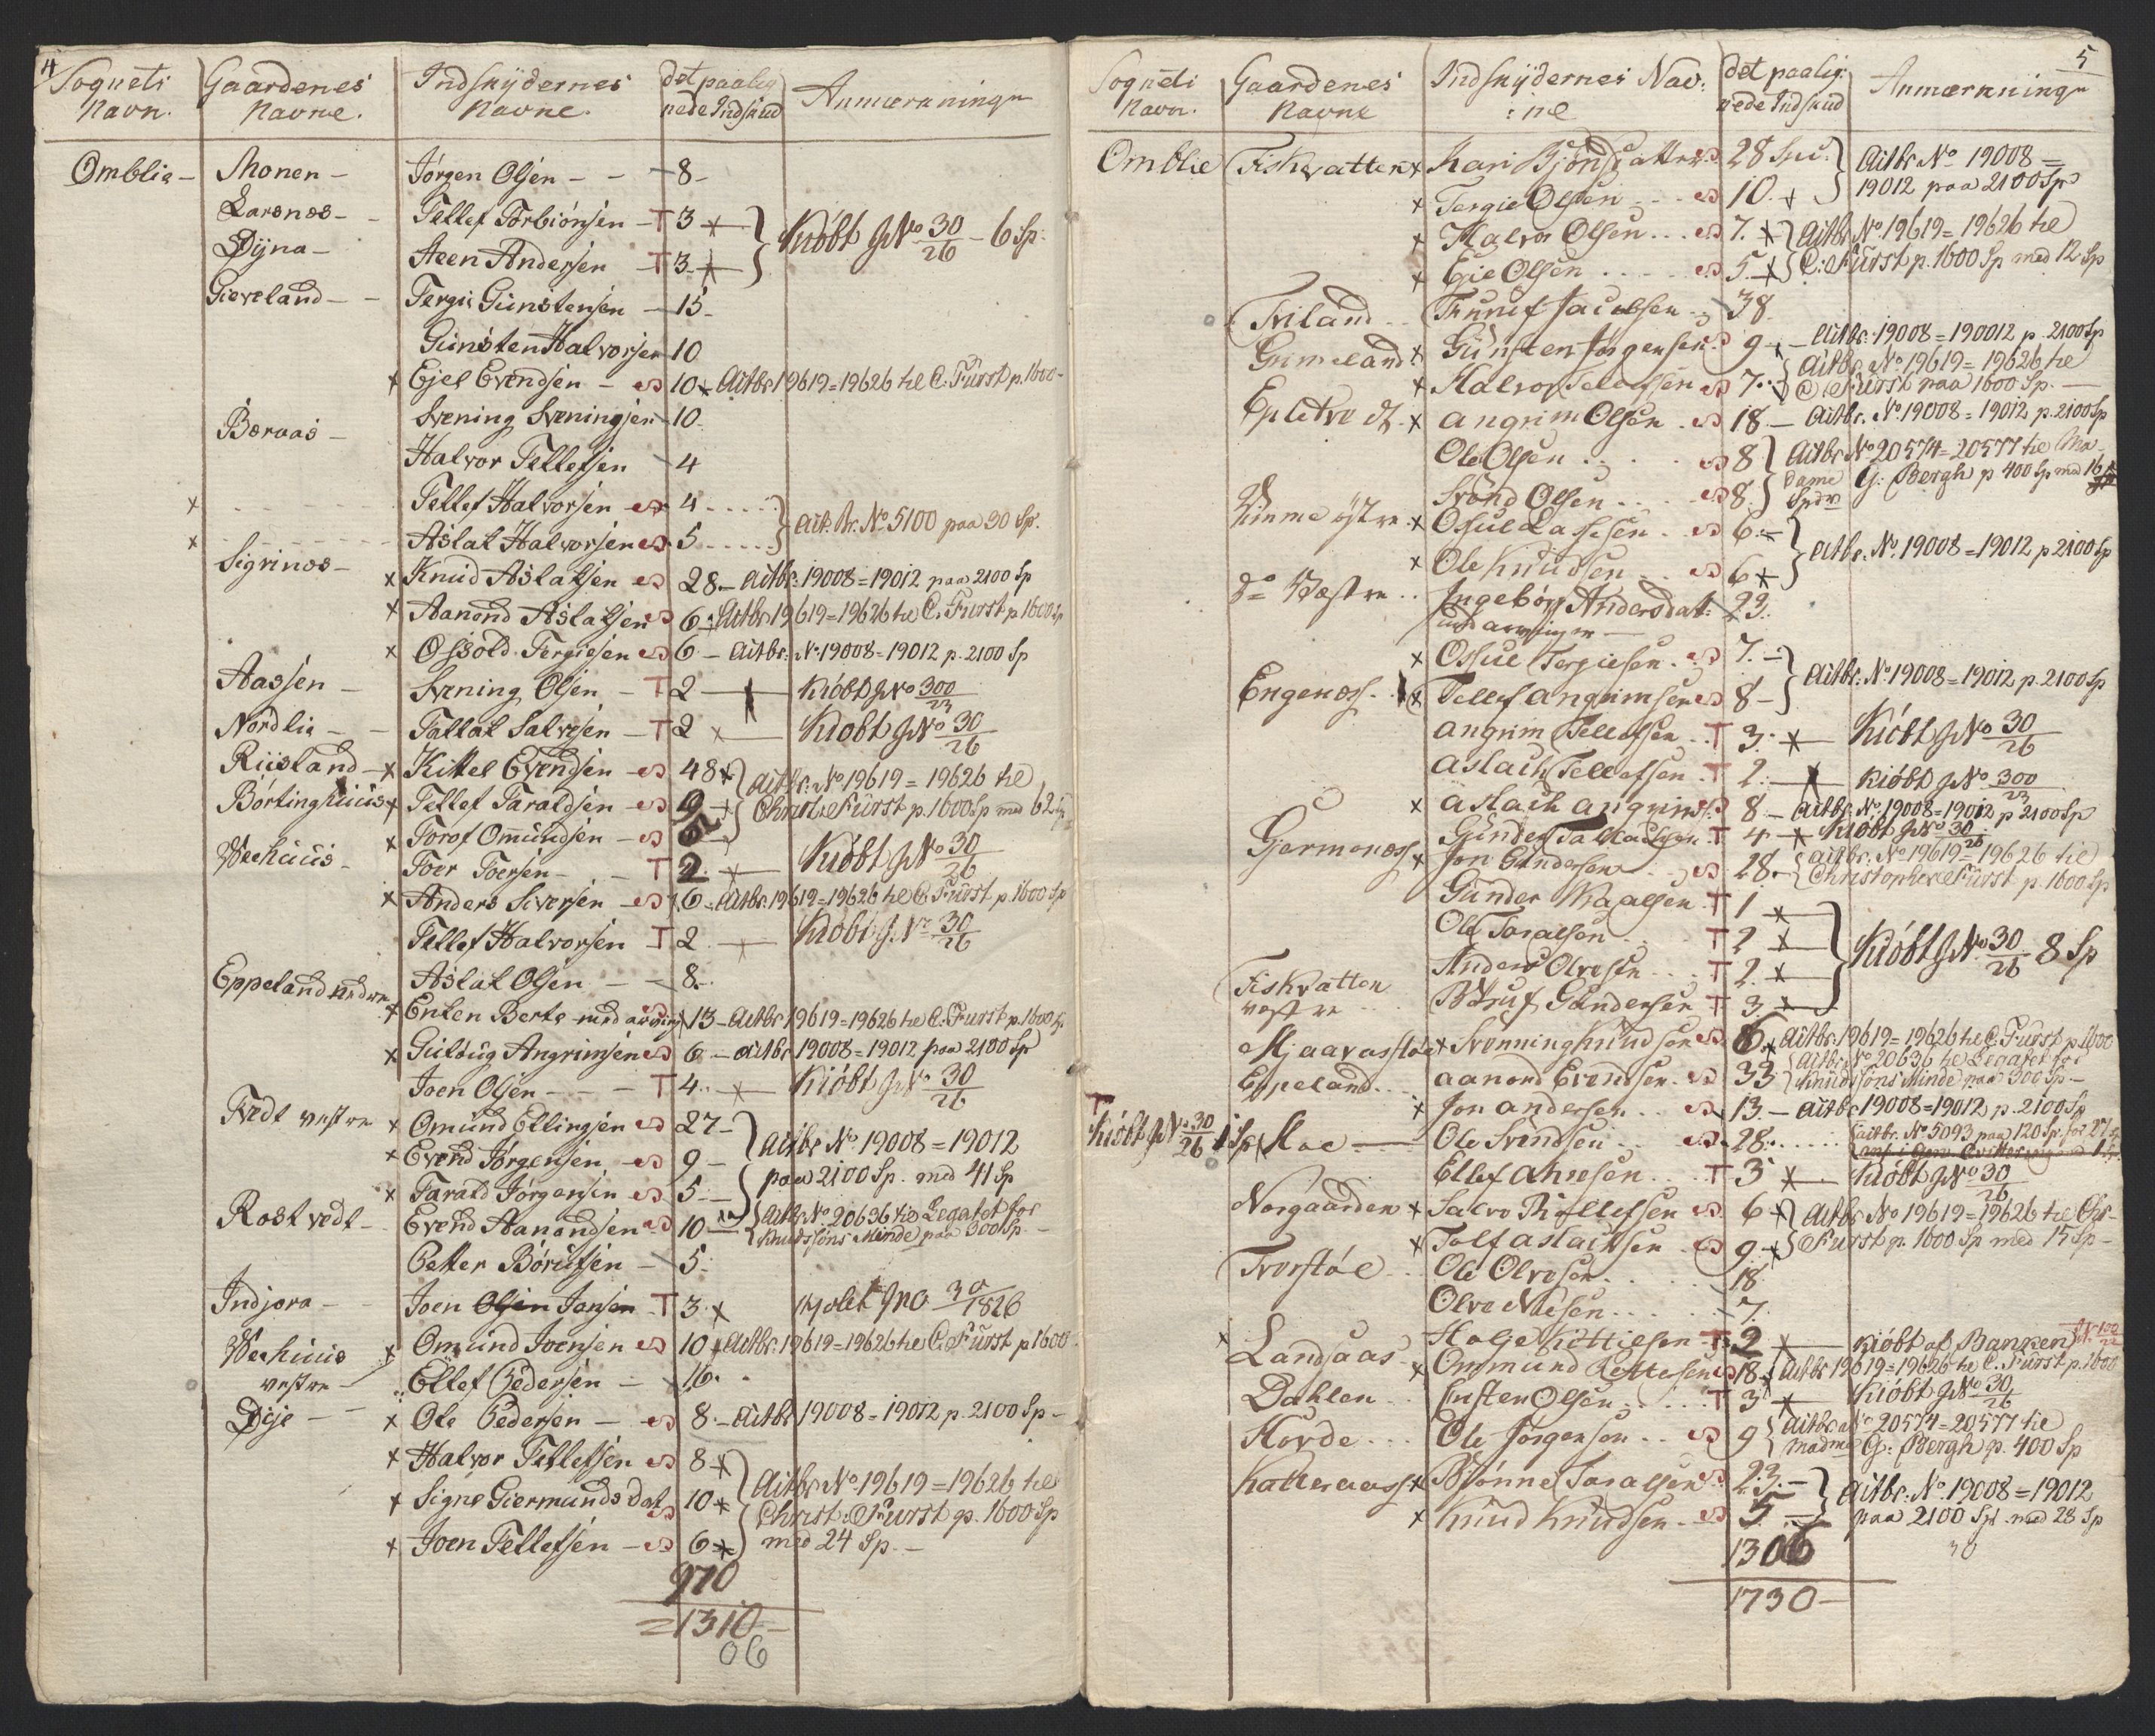 4
Sognets Navn. Gaardenes Navne. Indskydernes Navne. det paalignede Indskud Anmærkninger
Omblie - Monen - Jørgen Olsen - - 8 -
Larsnes - Tellef Torbiønsen - T 3 x } Kiøbt J No 30/26 - 6 Sp.
Dÿna - Aeen Andersen - T 3 - x
Gieveland - - Tergie Gunstensen - 15 -
Gunsten Halvorsen 10
x Ejel Evendsen - 10 x Actbr. 19619 = 19626 til C. Fürst p. 1600 -
Børaas - Svening Sveningsen - 10.
Halvor Tellefsen - 4
x Tellef Halvorsen 4 . . . . } Act. Br. No 5100 paa 30 Sp.
x Aslak Halvorsen 5 . . . .
Sigrinos - x Knud Aslaksen 28 - Actbr. 19008 = 19012 paa 2100 Sp
x Aanond Aslaksen 6 - Actbr. 19619 = 19626 til C. Furst p 1600 Sp
x Ossold Tergiesen 6 - Actbr. No 19008 = 19012 p. 2100 Sp
Aassen - Svening Olsen - T 2 - x Kiøbt J No 300/23
Nordlie - - Tallak Salvesen - T 2 x Kiøbt J No 30/26
Riisland - x Kittel Evendsen - 48 x } Actbr. No 19619 = 19626 til
Børtinghuus x Tellef Taraldsen - 9 - x Christ. Fürst p. 1600 Sp med 62 Sp
x Torof Omundsen - 5
Veehuus - Toer Toersen - - T 2. x Kiøbt J No 30/26
x Anders Siversen - 6 - Actbr. 19619 = 19626 til C. Fürst p 1600 Sp
Tellef Halvorsen T 2 - Kiøbt J No 30/26
Eppeland nedre Aslak Olsen - - 8 -
x Enken Berte med arving 13 - Actbr. 19619 = 19626 til C. Furst p. 1600 Sp
x Gulbug Angrimsen 6 - Actbr. 19008 = 19012 paa 2100 Sp
Joen Olsen - - - T 4. x Kiøbt J No 30/26
Tvedt vestre x Omund Ellingsen 27 - } Actbr No 19008 = 19012
x Evend Jørgensen - 9 - paa 2100 Sp. med 41 Sp
x Tarald Jørgensen 5. -
Rostvedt - Evend Aanondsen 10 - { Actbr. No. 20636 til Legatet for
Knudssøns Minde paa 300 Sp. -
Petter Børufsen - 5.
Indjora - Joen Olsen Jansen - T 3. x Kjøbt J No 30/1826
Veehuus vestre - x Omund Joensen 10 x Actbr. 19619 = 19626 til C. Fürst p 1600
Ellef Pedersen - 16.
Dÿje - - x Ole Pedersen - 8. - Actbr. 19008 = 19012 p. 2100 Sp -
x Halvor Tellefsen 8 x } Actbr. No. 19619 = 19626 til
x Signe Giermunds Dat 10 x Christ. Furst p. 1600 Sp
x Joen Tellefsen - 6 x med 24 Sp. -
970
= 1310 -
06
5
Sognets Navn. Gaardenes Navne Indskydernes Nav:ne det paalignede Indskud Anmærkninger
Omblie Fiskvatten x Kari Bjønsdatter 28 Spe. } Actbr No 19008 =
x Tergie Olsen . . . 10. x 19012 paa 2100 Sp
x Halvor Olsen . . . 7. x } Actbr. No. 19619 = 19626 til
x Egie Olsen . . . . 5. x C. Fürst p. 1600 Sp med 12 Sp
Friland . . Trunuf Jacobsen . 38
Grimeland x Gunsten Jørgensen 9 x - Actbr. 19008 = 190012 p. 2100 Sp
x Halvor Tellefsen 7. { Actbr No 19619 = 19626 til
C. Fürst paa 1600 Sp. -
Epletvedt . x Angrim Olsen . 18 - Actbr. No. 19008 = 19012 p. 2100 Sp
Ole Olsen . . . . 8 } Actbr No 20574 = 20577 til Ma-
dame G. Bergh p 400 Sp med 16
Svend Olsen . . . 8.
Kimme østre . x Ossul Lassesen . 6. - } Actbr. No. 19008 = 19012 p 2100 Sp
x Ole Knudsen . . 6 x
Do Vestre . . Ingebør Andersdat. 23.
med arvinger -
x Ossul Tergiesen . 7. - } Actbr. No 19008 = 19012 p. 2100 Sp
Engenæss . x Tellef Angrimsen 8 -
Angrim Tellefsen . T 3. x Kiøbt J No 30/26
Aslach Tellefsen . T 2. x Kiøbt J No 300/23
x Aslach Angrims. 8 - Actbr. No. 19008 = 19012 p 2100 Sp
Germenæss Gunder Tallachsen T 4 - x Kiøbt J No 30/26
x Jon Gundersen . . 28. { Actbr. No 19619 = 19626 til
Christopher Fürst p. 1600 Sp
Gunder Waalsen . T 1 x } Kiøbt J No. 30/26 8 Sp
Ole Taralsen . . T 2 x
Anders Olvesen . . T 2. x
Fiskvatten vestre . . . Børuf Gundersen T 3 x
Mjaavasstøe x Svenning Knudsen 6 x Actbr. 19619 = 19626 til C. Fürst p. 1600
Eppeland . . Aanond Evendsen . 33 { Actbr. No 20636 til Legatet for
Knudssøns Minde paa 300 Sp -
x Jon Andersen . . 13. - Actbr 19008 = 19012 p. 2100 Sp
T Kiøbt J No 30/26 1 Sp Moe - Ole Svendsen . . 28. . . . . { Actbr. No 5093 paa 120 Sp. for 27 Sp
Ellef Ahnesen . . T 3 x Kiøbt J No 30/26
Norgaarden x Salve Rollefsen 6 x } Actbr No 19619 = 19626 til Chr.
x Tolf Aslachsen 9 x Furst p. 1600 Sp med 15 Sp -
Tvorstøe . . Ole Olvesen . . . 18
Olve Nilsen . . . . 7.
x Landsaas . Halje Kittilsen T 2 x Kiøbt af Banken J No 100/22
x Ommund Kettelsen 18 x Actbr 19619 = 19626 til C. Fürst p. 1600
Dahlen . . Insten Olsen . . . T 3 x Kiøbt J No 30/26
Hovde . . . Ole Jørgensen . . 9 { Actbr. No 20574 = 20577 til
Madme G. Bergh p. 400 Sp
Katteraass x Bjønne Taralsen . 23. - } Actbr. No. 19008 = 19012
x Knud Knudsen . 5. - paa 2100 Sp. med 28 Sp
1306
1730 -